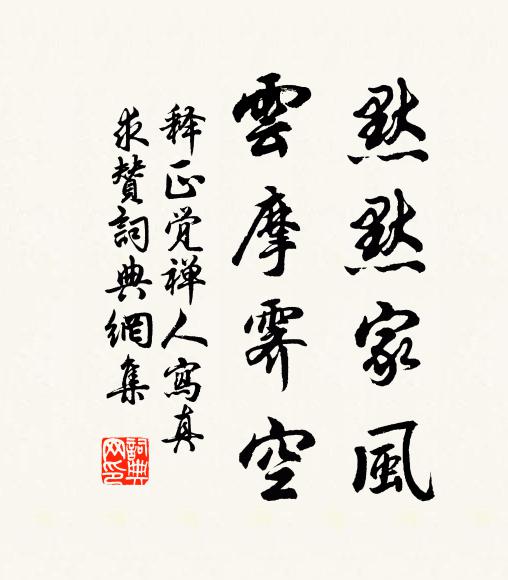 默默家風
雲摩霽空
释正觉禅人寫真
求贊詞典網集
詞典
网印